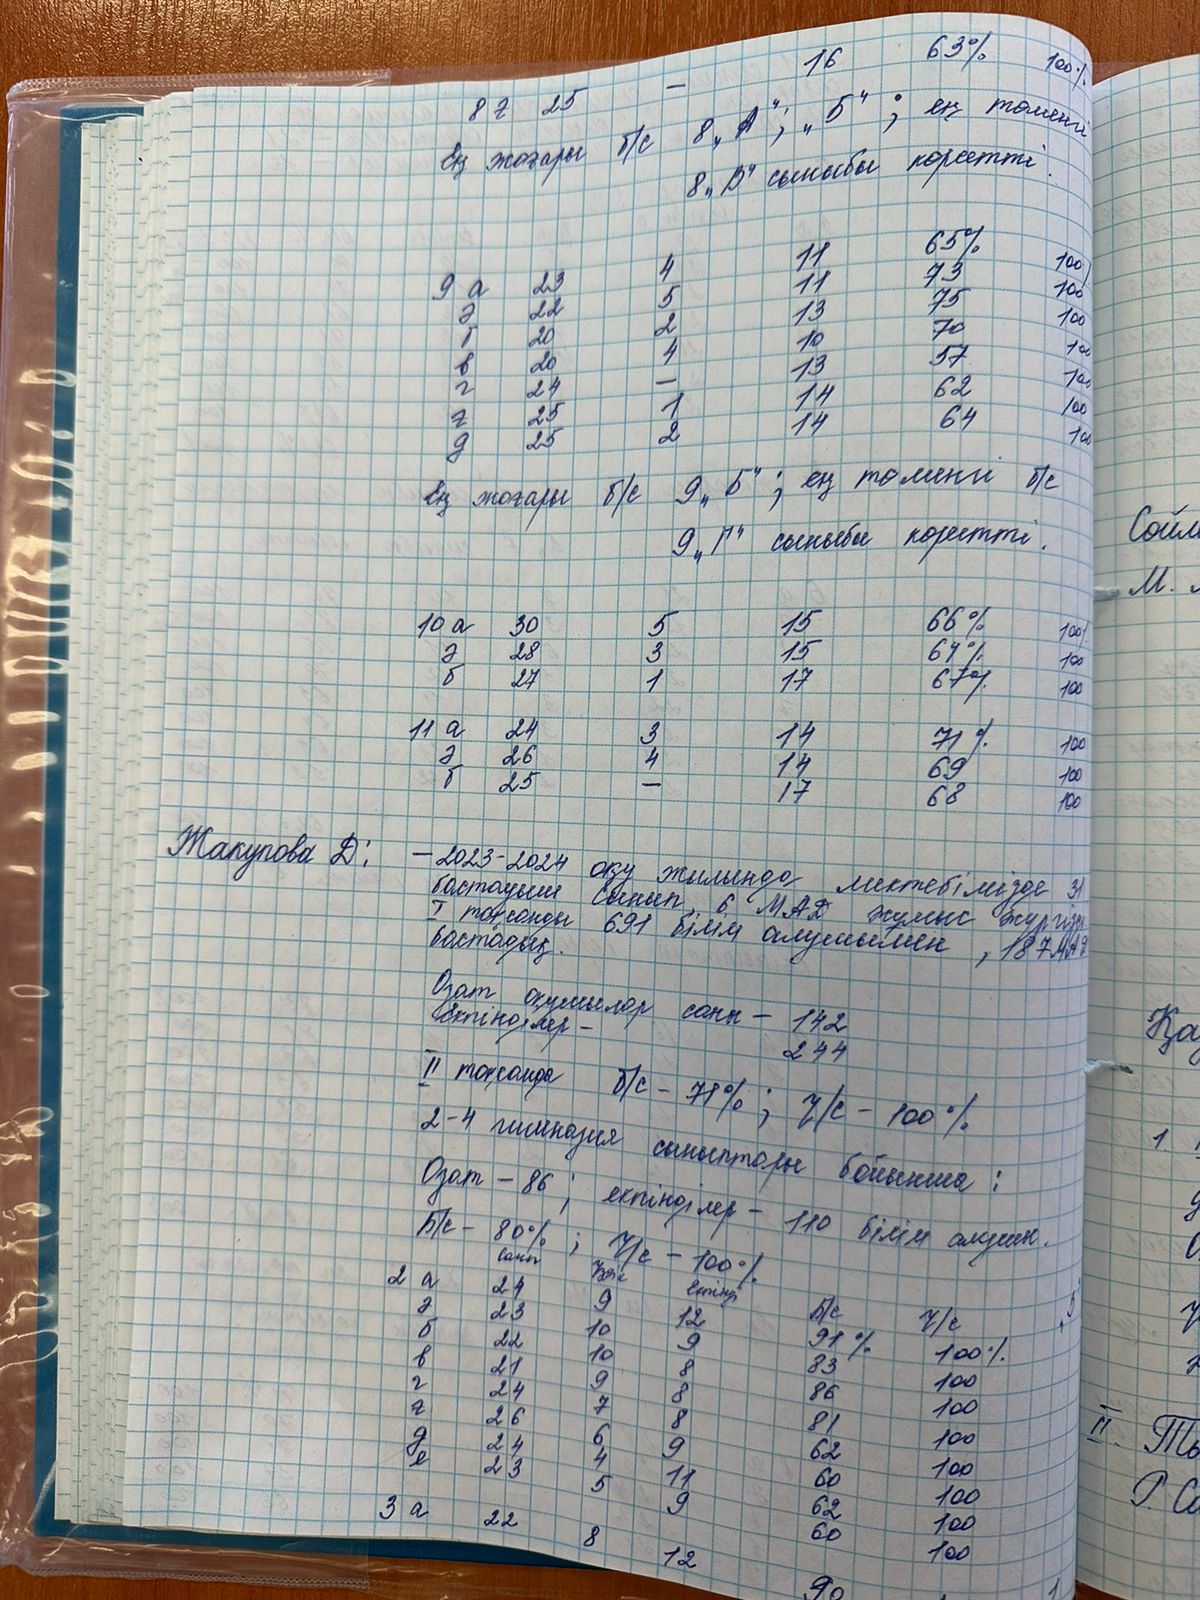 8 ғ 25 — 16 63% 100%
Ең жоғары б/с 8 „А", „Б"; ең төменгі
8 „В" сыныбы көрсетті.
9 а 23 4 11 65% 100%
ә 22 5 11 73 100
б 20 2 13 75 100
в 20 4 10 70 100
г 24 — 13 57 100
ғ 25 1 14 62 100
д 25 2 14 64 100
Ең жоғары б/с 9 „Б"; ең төменгі б/с
9 „Г" сыныбы көрсетті.
10 а 30 5 15 66% 100%
ә 28 3 15 64% 100
б 27 1 17 67% 100
11 а 24 3 14 71% 100
ә 26 4 14 69 100
б 25 — 17 68 100
Жакупова Д: – 2023-2024 оқу жылында мектебімізде 31
бастауыш сынып, 6 МАД жұмыс жүргізді
I тоқсанды 691 білім алушымен, 187 МАД
бастадық.
Озат оқушылар саны – 142
Екпінділер – 244
II тоқсанда б/с – 71%; Ү/с – 100%
2-4 гимназия сыныптары бойынша:
Озат – 86; екпінділер – 110 білім алушы.
Б/с – 80%; Ү/с – 100%
саны Үздік Екпінді Б/с Ү/с
2 а 24 9 12 91% 100%
ә 23 10 9 83 100
б 22 10 8 86 100
в 21 9 8 81 100
г 24 7 8 62 100
ғ 26 6 9 60 100
д 24 4 11 62 100
е 23 5 9 60 100
3 а 22 8 12 90 1
Сойл
М.
Қа
1.
II. Ты